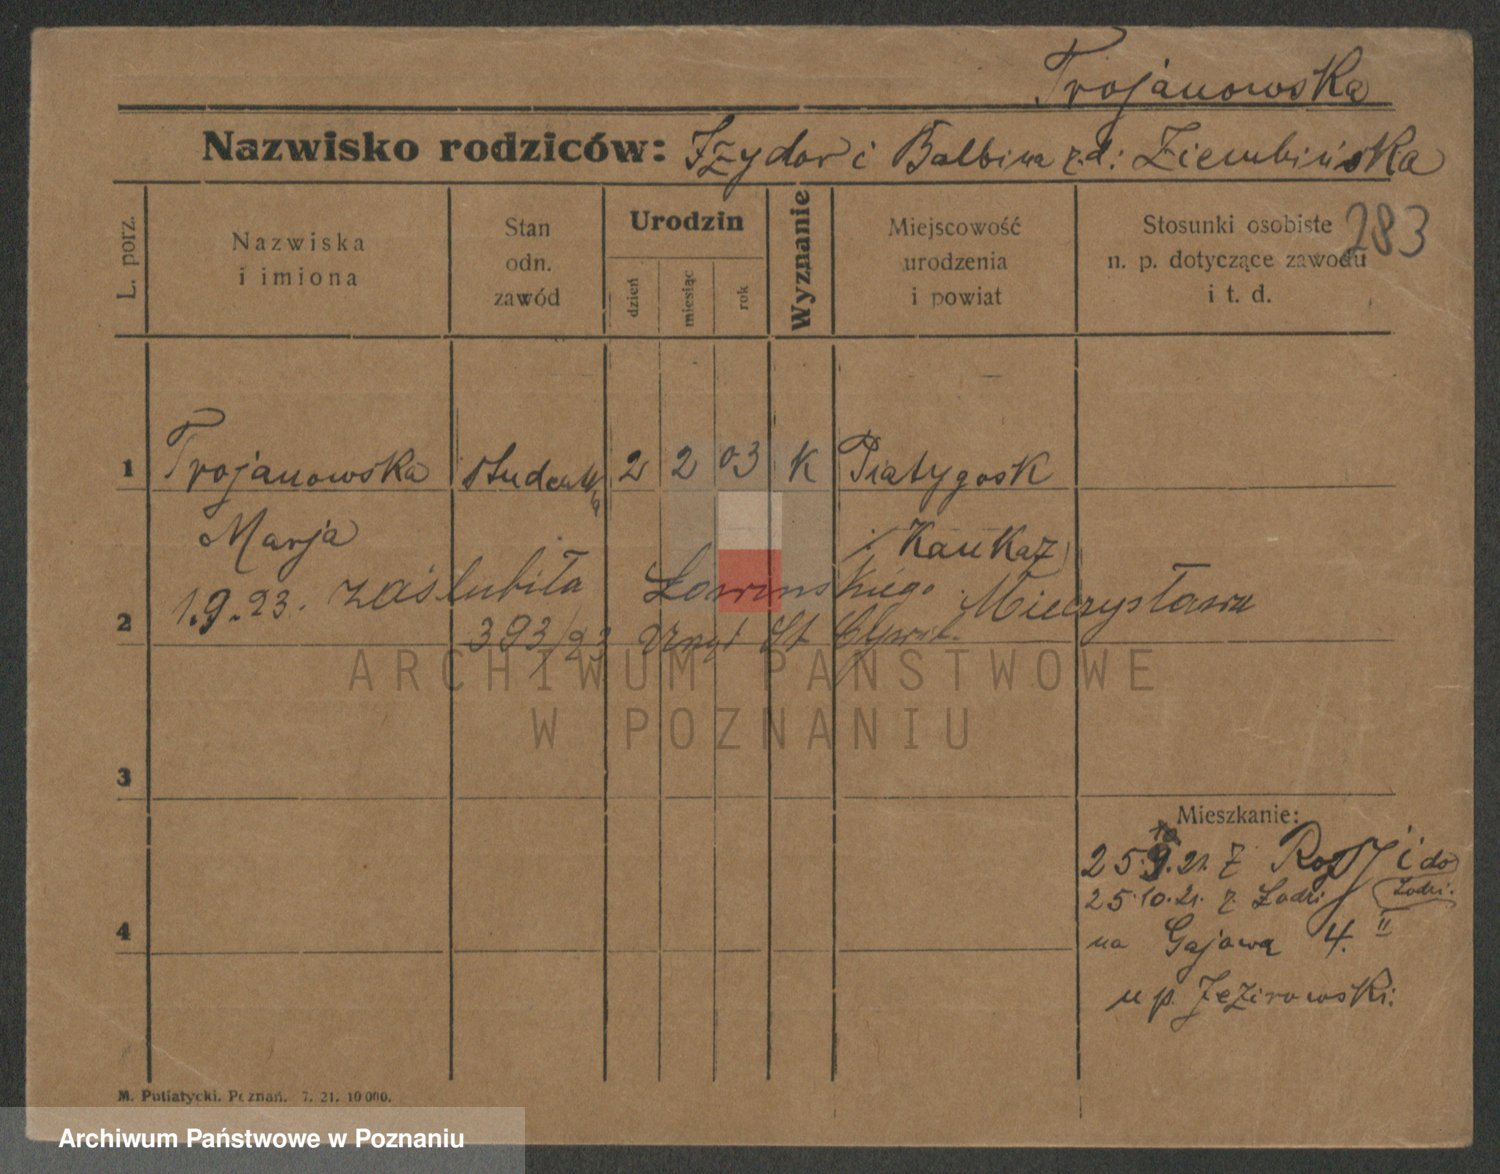 Trojanowska
Nazwisko rodziców: Izydor i Balbina z.d: Ziembińska
283
L. porz.
Nazwiska
i imiona
Stan
odn.
zawód
Urodzin
dzień
miesiąc
rok
Wyznanie
Miejscowość
urodzenia
i powiat
Stosunki osobiste
n. p. dotyczące zawodu
i t. d.
1 Trojanowska studentka 2 2 03 K Piatygosk
Marja / Kaukaz
1.9.23. zaślubiła Łowińskiego Mieczysława
2
393/23 Urząd St. Cywil.
ARCHIWUM PAŃSTWOWE
W POZNANIU
3
Mieszkanie:
10
25.9.21. z Rosji i do
25.10.21. z Łodzi Łodzi.
4 na Gajowa 4. II
u p. Jezirowski.
M. Putiatycki. Poznań. 7. 21. 10 000.
Archiwum Państwowe w Poznaniu